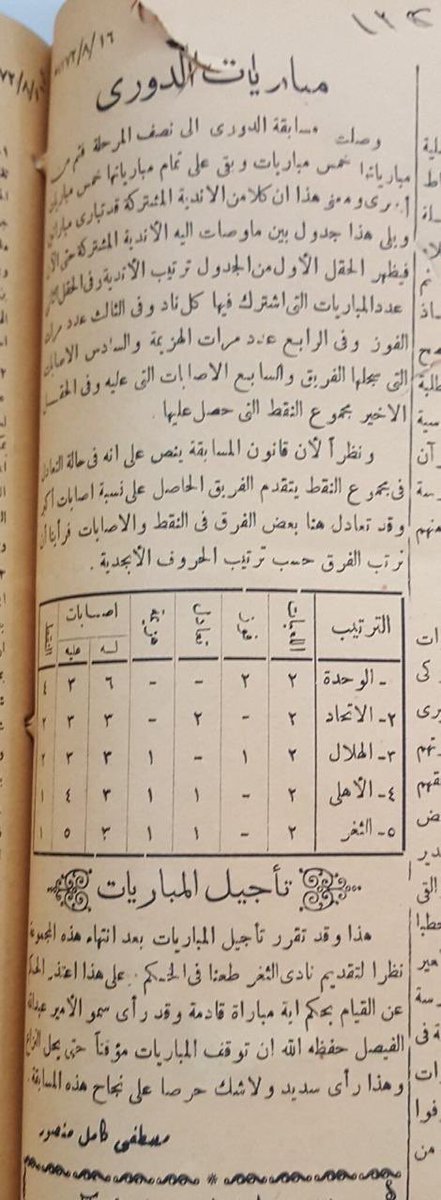 ٧٣/٨/١٦
مباريات الدورى
وصلت مسابقة الدورى الى نصف المرحلة فتم من
مبارياتها خمس مباريات وبقى على تمام مبارياتها خمس مباريات
أخرى ومعنى هذا ان كلا من الاندية المشتركة قد تبارى مباراتين
ويلى هذا جدول يبين ماوصلت اليه الأندية المشتركة حتى الآن
فيظهر الحقل الأول من الجدول ترتيب الأندية وفى الحقل الثانى
عدد المباريات التى اشترك فيها كل ناد وفى الثالث عدد مرات
الفوز وفى الرابع عدد مرات الهزيمة والسادس الاصابات
التى سجلها الفريق والسابع الاصابات التى عليه وفى الحقل
الاخير مجموع النقط التى حصل عليها .
ونظراً لأن قانون المسابقة ينص على انه فى حالة التعادل
فى مجموع النقط يتقدم الفريق الحاصل على نسبة اصابات اكبر
وقد تعادل هنا بعض الفرق فى النقط والاصابات فرأينا أن
نرتب الفرق حسب ترتيب الحروف الأبجدية .
الترتيب اللعبات فوز تعادل هزيمة اصابات النقط
له عليه
ـ الوحدة ٢ ٢ - - ٦ ٣ ٤
٢ـ الاتحاد ٢ - ٢ - ٣ ٣ ٢
٣ـ الهلال ٢ ١ - ١ ٣ ٣ ٢
٤ـ الأهلى ٢ - ١ ١ ٣ ٤ ١
٥ـ الثغر ٢ - ١ ١ ٣ ٥ ١
تأجيل المباريات
هذا وقد تقرر تأجيل المباريات بعد انتهاء هذه المجموعة
نظرا لتقديم نادى الثغر طعنا فى الحكم . على هذا اعتذر الحكم
عن القيام بحكم اية مباراة قادمة وقد رأى سمو الأمير عبدالله
الفيصل حفظه الله ان توقف المباريات مؤقتاً حتى يحل النزاع
وهذا رأى سديد ولاشك حرصا على نجاح هذه المسابقة .
مصطفى كامل منصور